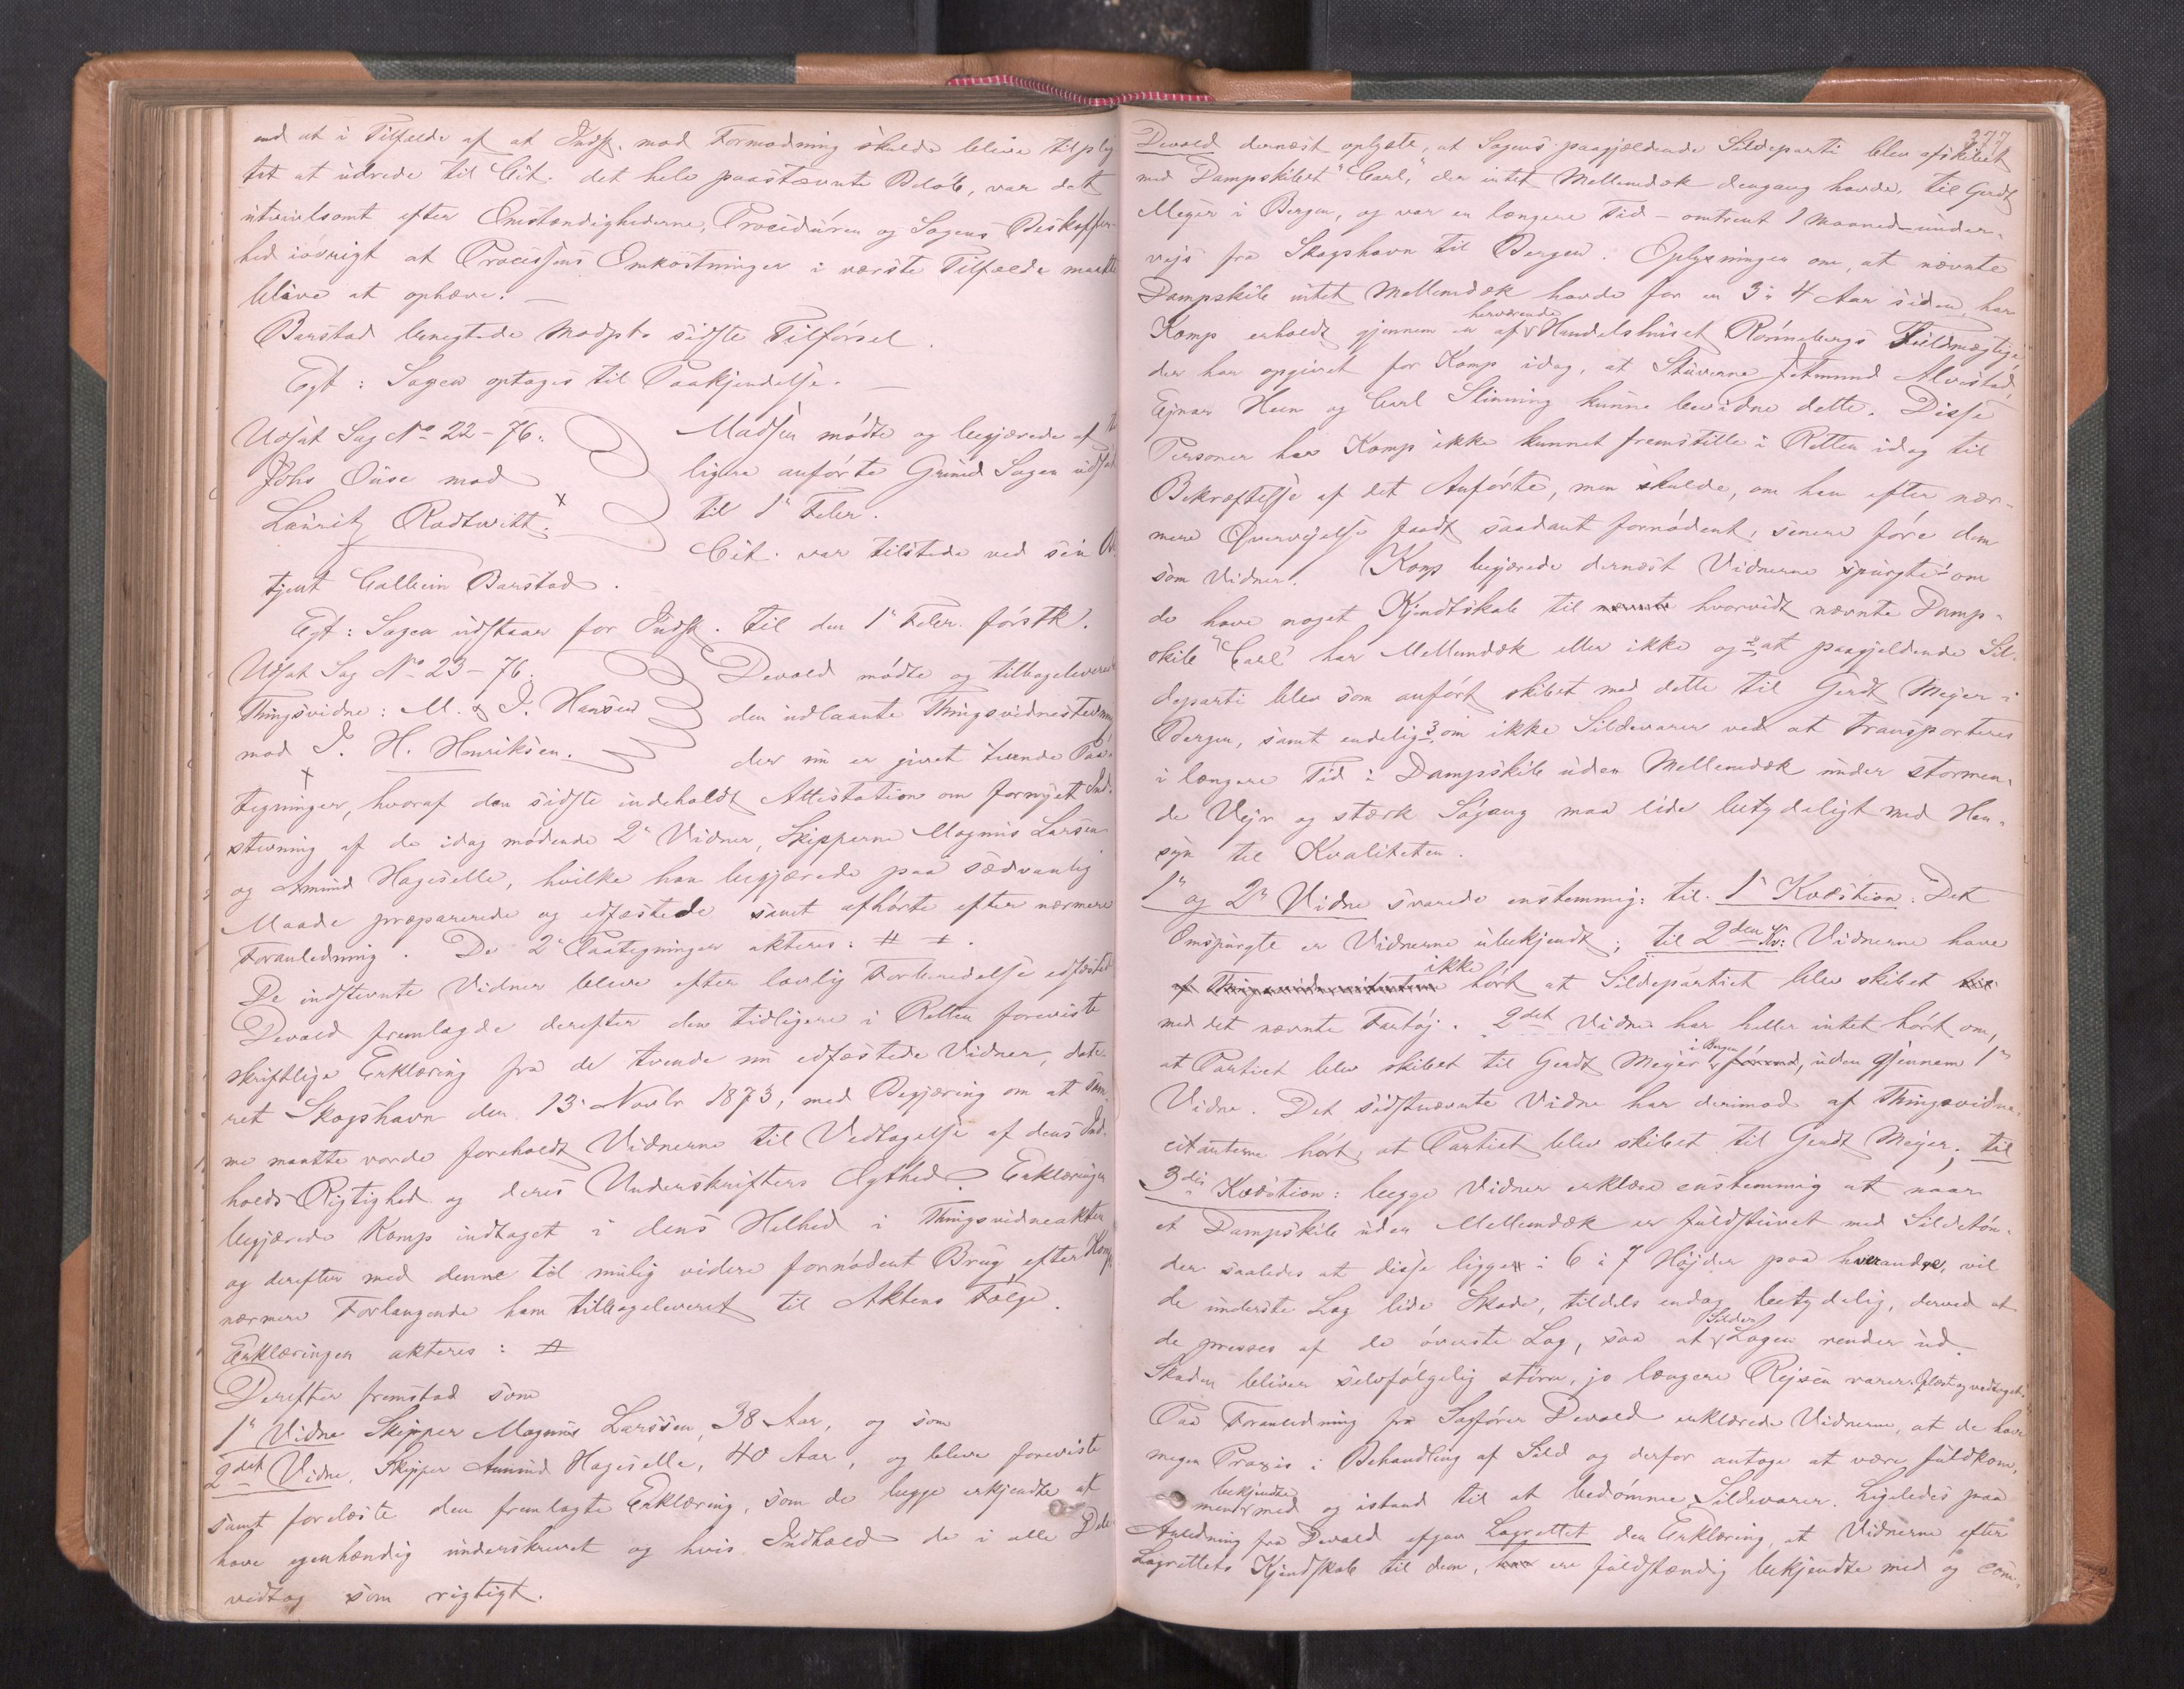 end at i Tilfælde af at Indst. mod Formodning skulde blive tilplig
tet at udrede til Cit. det hele paastævnte Beløb, var det
utvivlsomt efter Omstændighederne, Proceduren og Sagens Beskaffen-
hed iøvrigt at Processens Omkostninger i værste Tilfælde maatte
blive at ophæve. —
Barstad benegtede Modpts sidste Tilførsel.
Egt: Sagen optages til Paakjendelse. —
Udsat Sag No 22-76.
Johs Ouse mod
Lauritz Rodtwitt.
Madsen mødte og begjærede af
ligere anførte Grund Sagen udsat
til 1e Febr.
Cit. var tilstede ved sin
tjent Callein Barstad.
Egt: Sagen udstaar for Indst. til den 1e Febr. førstk.
Udsat Sag No 23-76.
Thingsvidne: M. & J. Hansen
mod J. H. Henriksen.
Devold mødte og tilbageleverede
den udlaante Thingsvidnestevning
der nu er givet tvende Paa-
tegninger, hvoraf den sidste indeholdt Attestation om fornyet Ind-
stevning af de idag mødende 2de Vidner, Skipperne Magnus Larsen
og Amund Hageselle, hvilke han begjærede paa sædvanlig
Maade præparerede og edfæstede samt afhørte efter nærmere
Foranledning. De 2de Paategninger akteres: # ‡.
De indstevnte Vidner bleve efter lovlig Forberedelse edfæstede
Devold fremlagde derefter den tidligere i Retten foreviste
skriftlige Erklæring fra de tvende nu edfæstede Vidner, date-
ret Skogshavn den 13. Novbr 1873, med Begjæring om at sam-
me maatte vorde foreholdt Vidnerne til Vedtagelse af dens Ind-
holds Rigtighed og deres Underskrifters Ægthed. Erklæringen
begjærede Komp indtaget i dens Helhed i Thingsvidneakten
og derefter med denne til mulig videre fornødent Brug efter Komp
nærmere Forlangende ham tilbageleveret til Aktens Følge.
Erklæringen akteres: #
Derefter fremstod som
1e Vidne Skipper Magnus Larssen, 38 Aar, og som
2det Vidne, Skipper Amund Hageselle, 40 Aar, og bleve foreviste
samt forelæste den fremlagte Erklæring, som de begge erkjendte at
have egenhændig underskrevet og hvis Indhold de i alle Dele
vedtog som rigtigt.
377
Devold dernæst oplyste, at Sagens paagjældende Sildeparti blev afskibet
med Dampskibet "Carl," der intet Mellemdæk dengang havde, til Gerdt
Meyer i Bergen, og var en længere Tid – omtrent 1 Maaned – under-
vejs fra Skogshavn til Bergen. Oplysningen om, at nævnte
Dampskib intet Mellemdæk havde for en 3 à 4 Aar siden, har
Komp erholdt gjennem en af herværende Handelshuset Rønnebergs Fuldmægtige,
der har opgivet for Komp idag, at Stuverne Jetmund Alvestad,
Ejnar Huen og Carl Slinning kunne bevidne dette. Disse
Personer har Komp ikke kunnet fremstille i Retten idag til
Bekræftelse af det Anførte, men skulde, om han efter nær-
mere Overvejelse fandt saadant fornødent, senere føre dem
som Vidner. Komp begjærede dernæst Vidnerne spurgte 1 om
de have noget Kjendskab til nævnte hvorvidt nævnte Damp-
skib "Carl" har Mellemdæk eller ikke og 2 at paagjeldende Sil-
departi blev som anført skibet med dette til Gerdt Meyer i
Bergen, samt endelig 3 om ikke Sildevarer ved at transporteres
i længere Tid i Dampskib uden Mellemdæk under stormen-
de Vejr og stærk Søgang maa lide betydeligt med Hen-
syn til Kvaliteten.
1e og 2e Vidne svarede enstemmig: til 1e Kvæstion: Det
Omspurgte er Vidnerne ubekjendt; til 2den Kv: Vidnerne have
af Thingsvidnecitanten ikke hørt at Sildepartiet blev skibet til
med det nævnte Fartøj. 2det Vidne har heller intet hørt om,
at Partiet blev skibet til Gerdt Meyer i Bergen, uden gjennem 1e
Vidne. Det sidstnævnte Vidne har derimod af Thingsvidne-
citanterne hørt, at Partiet blev skibet til Gerdt Meyer; til
3die Kvæstion: begge Vidner erklære enstemmig at naar
et Dampskib uden Mellemdæk er fuldstuvet med Sildetøn-
der saaledes at disse ligger i 6 à 7 Højder paa hverandre, vil
de underste Lag lide Skade, tildels endog betydelig, derved at
de presses af de øverste Lag, saa at Silden Lagen render ud.
Skaden bliver selvfølgelig større, jo længere Rejsen varer. Oplæst og vedtaget.
Paa Foranledning fra Sagfører Devold erklærede Vidnerne, at de have
megen Praxis i Behandling af Sild og derfor antoge at være fuldkom-
ment bekjendte med og istand til at bedømme Sildevarer. Ligeledes paa
Anledning fra Devold afgav Lagrettet den Erklæring, at Vidnerne efter
Lagrettets Kjendskab til dem, har ere fuldstændig bekjendte med og com-